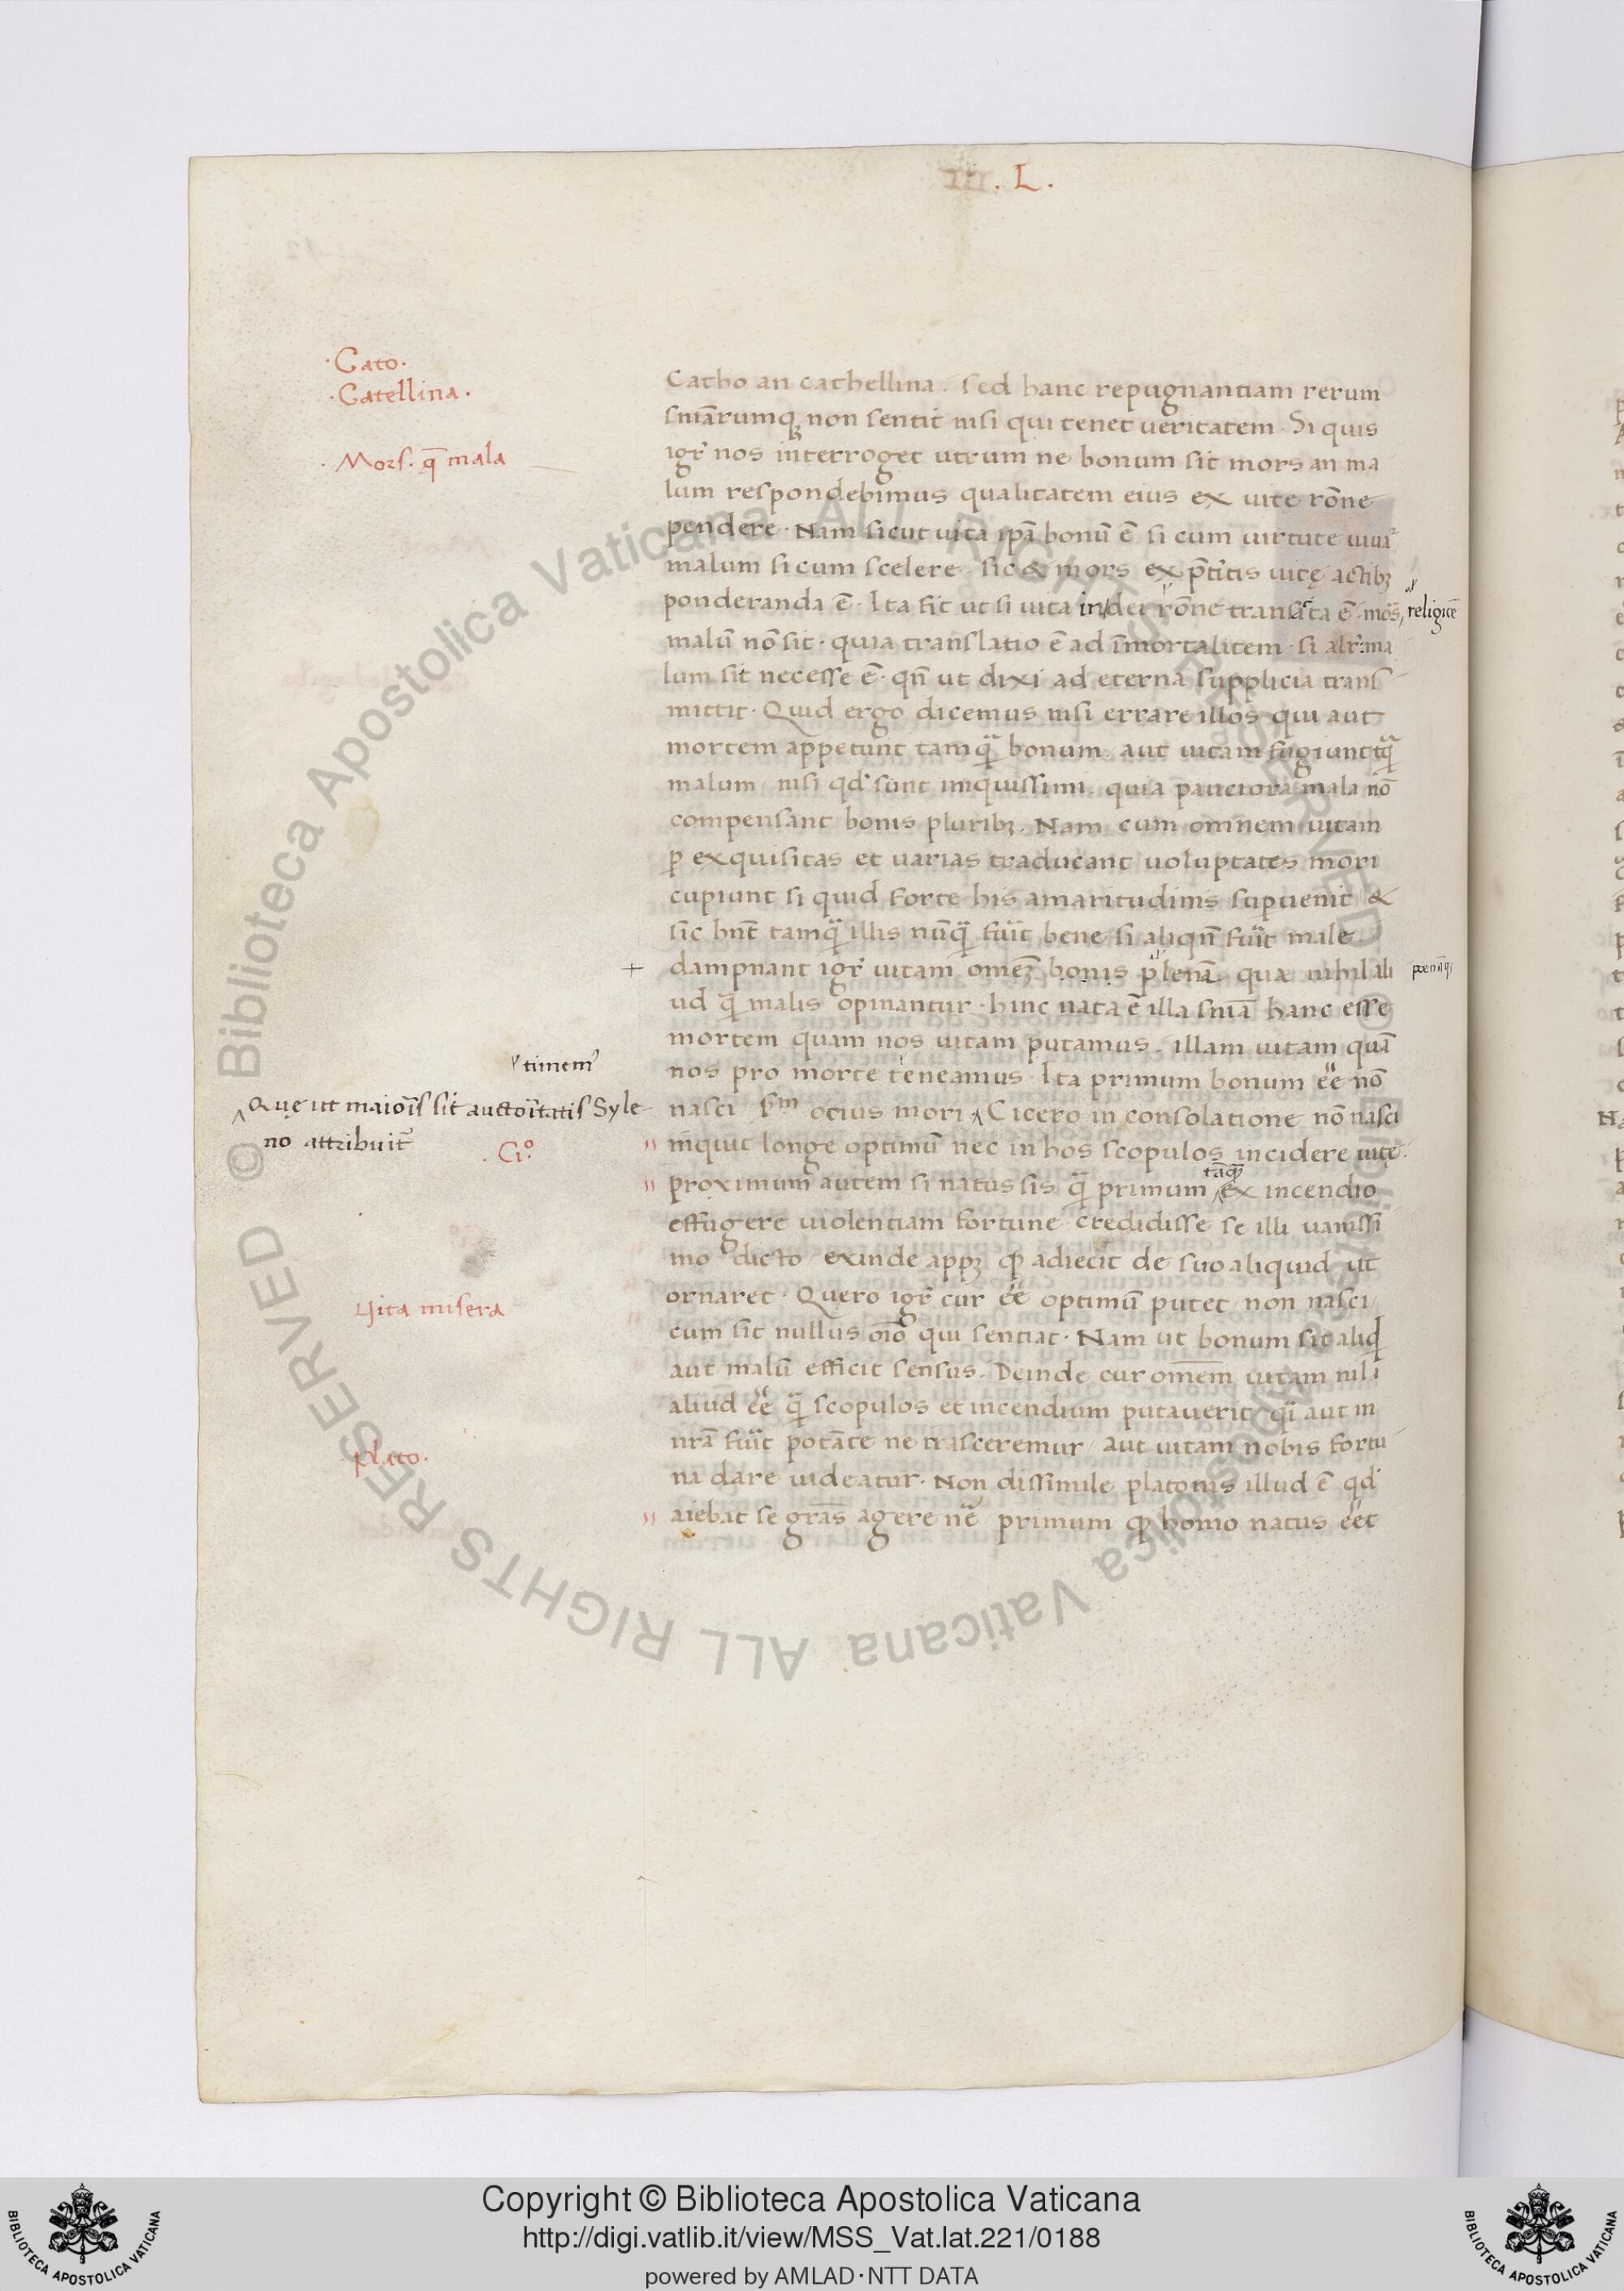 . L .
· Cato ·
· Catellina ·
· Mors · q̄ mala
Catho an cathellina . sed hanc repugnantiam rerum
sniārumqꝫ non sentit nisi qui tenet ueritatem · Si quis
igr̄ nos interroget utrum ne bonum sit mors an ma
lum respondebimus qualitatem eius ex uite rōne
pendere · Nam sicut uita ip̄a bonū ē si cum uirtute uiuat᷑
malum si cum scelere · sic & mors ex p̄titis uitę actibꝫ
ponderanda ē · Ita fit ut si uita in dei rōne transacta ē · mors religiōe
malū nō sit · quia translatio ē ad īmortalitem · si alr̄ : ma
lum sit necesse ē · qn̄ ut dixi ad eterna supplicia trans
mittit · Quid ergo dicemus nisi errare illos qui aut
mortem appetunt tamqᷓ bonum . aut uitam fugiunt tqᷓ
malum / nisi qd' sunt iniquissimi . quia pauciora mala nō
compensant bonis pluribꝫ . Nam cum omnem uitam
ꝑ exquisitas et uarias traducant uoluptates mori
cupiunt si quid forte his amaritudinis suꝑuenit &
sic hn̄t tamqᷓ illis nūqᷓ fuit bene si aliqn̄ fuit male .
+ dampnant igr̄ uitam omeꝫ bonis plenā . quæ nihil ali
ud qᷓ malis opinantur · hinc nata ē illa snīa hanc esse
mortem quam nos uitam putamus . illam uitam quā
timem᷑
nos pro morte teneamus · Ita primum bonum ēē nō
Quę ut maioris sit auctoritatis Syle
nasci Sm ocius mori ‸ Cicero in consolatione nō nasci
no attribuit᷑
. Ci.º
" inquit longe optimū nec in hos scopulos incidere uitę .
tāqᷓ
" proximum autem si natus sis qᷓ primum ‸ ex incendio
effugere uiolentiam fortune credidisse se illi uanissi
mo dicto / exinde appꝫ ꝙ adiecit de suo aliquid ut
Uita misera
ornaret · Quero igr̄ cur ēē optimū putet / non nasci /
cum sit nullus oīo qui sentiat · Nam ut bonum sit aliqd
aut malū efficit sensus . Deinde cur omēm uitam nil i
aliud ēē qᷓ scopulos et incendium putauerit / qī aut in
nrā fuit potāte ne nasceremur / aut uitam nobis fortu
plato ·
na dare uideatur · Non dissimile platonis illud ē qd'
" aiebat se grās agere nē primum ꝙ homo natus ēēt
Copyright © Biblioteca Apostolica Vaticana
http://digi.vatlib.it/view/MSS_Vat.lat.221/0188
powered by AMLAD·NTT DATA
BIBLIOTECA APOSTOLICA VATICANA
BIBLIOTECA APOSTOLICA VATICANA
© Biblioteca Apostolica Vaticana ALL RIGHTS RESERVED
© Biblioteca Apostolica Vaticana ALL RIGHTS RESERVED